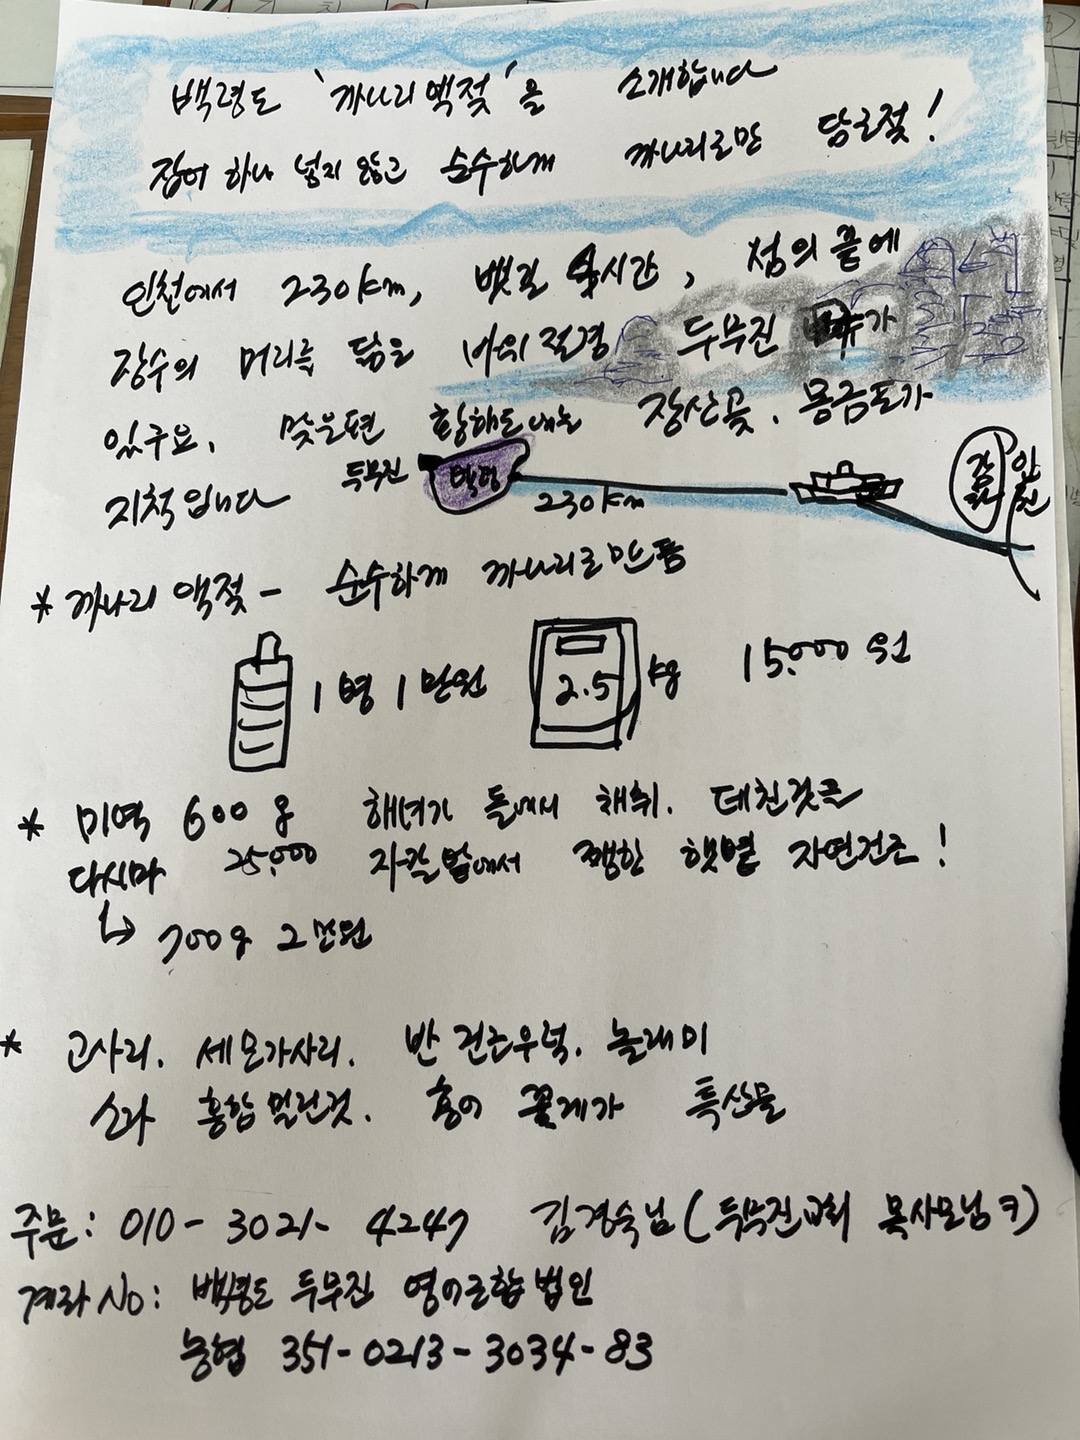 백령도 '까나리액젓'을 소개합니다
잡어 하나 넣지 않고 순수하게 까나리로만 담근젓!
인천에서 230km, 뱃길 4시간, 섬의 끝에
장수의 머리를 닮은 바위절경 두무진 가
있구요. 맞은편 황해도에는 장산곶. 몽금포가
지척입니다 두무진 백령
230km
인천
* 까나리 액젓 - 순수하게 까나리로만듬
1병 1만원 2.5 kg 15,000원
* 미역 600g 해녀가 돌에서 채취. 데친것은
다시마 25,000 자갈밭에서 쨍한 햇볕 자연건조!
↳ 700g 2만원
* 고사리. 세모가사리. 반건조우럭. 놀래미
소라 홍합말린것. 홍어 꽃게가 특산물
주문: 010-3021-4247 김경숙님(두무진교회 목사모님ㅋ)
계좌No: 백령도 두무진 영어조합법인
농협 351-0213-3034-83